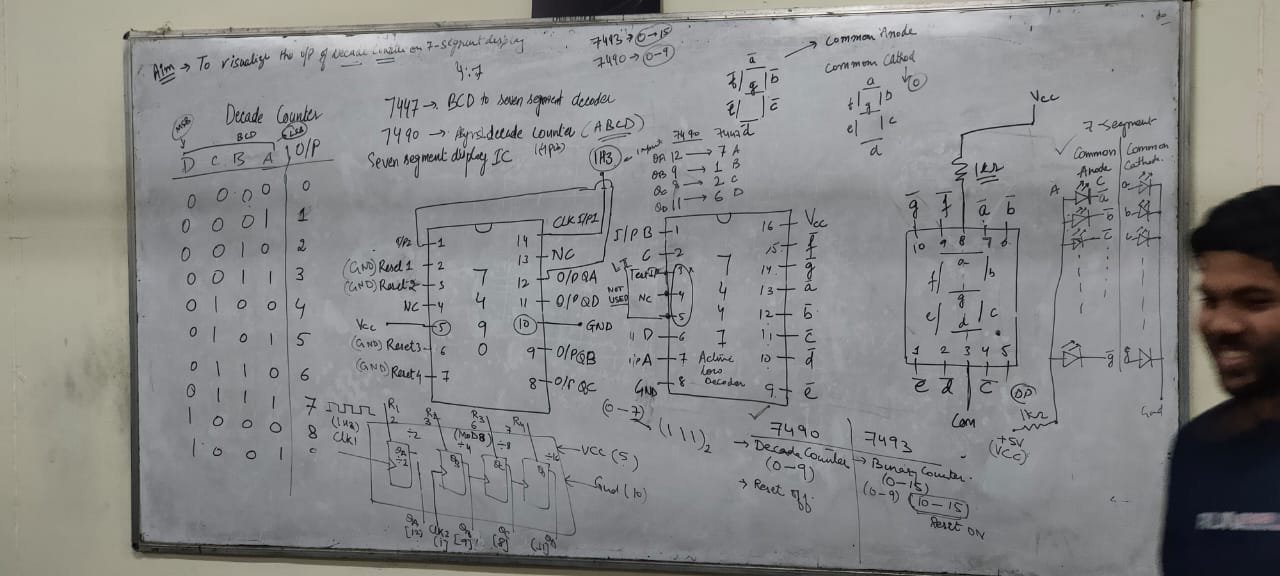 Aim → To visualize the o/p of decade counter on 7-segment display
4:7
7493 → (0-15)
7490 → (0-9)
7447 → BCD to seven segment decoder
7490 → decade counter (ABCD)
Seven segment display IC
1Hz ← input
Decade Counter
MSB BCD LSB
D C B A O/P
0 0 0 0 0
0 0 0 1 1
0 0 1 0 2
0 0 1 1 3
0 1 0 0 4
0 1 0 1 5
0 1 1 0 6
0 1 1 1 7
1 0 0 0 8
1 0 0 1
7490 7447
QA 12 → 7 A
QB 9 → 1 B
QC 8 → 2 C
QD 11 → 6 D
→ Common Anode
a
f g b
e c
d
Common Cathod
0
a
f g b
e c
d
I/P2 1
(GND) Reset 1 2
(GND) Reset 2 3
NC 4
Vcc 5
(GND) Reset 3 6
(GND) Reset 4 7
7490
14 CLK I/P1
13 NC
12 O/P QA
11 O/P QD
10 GND
9 O/P QB
8 O/P QC
I/P B 1
C 2
3
NOT USED NC 4
5
D 6
I/P A 7
GND 8
7447
Active Low Decoder
16 Vcc
15 f
14 g
13 a
12 b
11 c
10 d
9 e
Vcc
1kΩ
g f a b
10 9 8 7 6
a
f b
g
e c
d
1 2 3 4 5
e d c DP
Com
7-segment
Common Anode
Common Cathode
A
a
b
c
g
a
b
c
g
1kΩ
+5V
(VCC)
Gnd
(1Hz)
Clk1
R1 R2 R3 R4
2 3 6 7
(MOD8)
÷2 ÷4 ÷8 ÷16
QA QB QC QD
÷2
VCC (5)
Gnd (10)
QA CLK2 QB QC QD
[12] [1] [9] [8] [11]
(0-7)
(111)2
7490
→ Decade Counter
(0-9)
→ Reset off.
7493
→ Binary Counter.
(0-15)
(0-9) 10-15
Reset ON